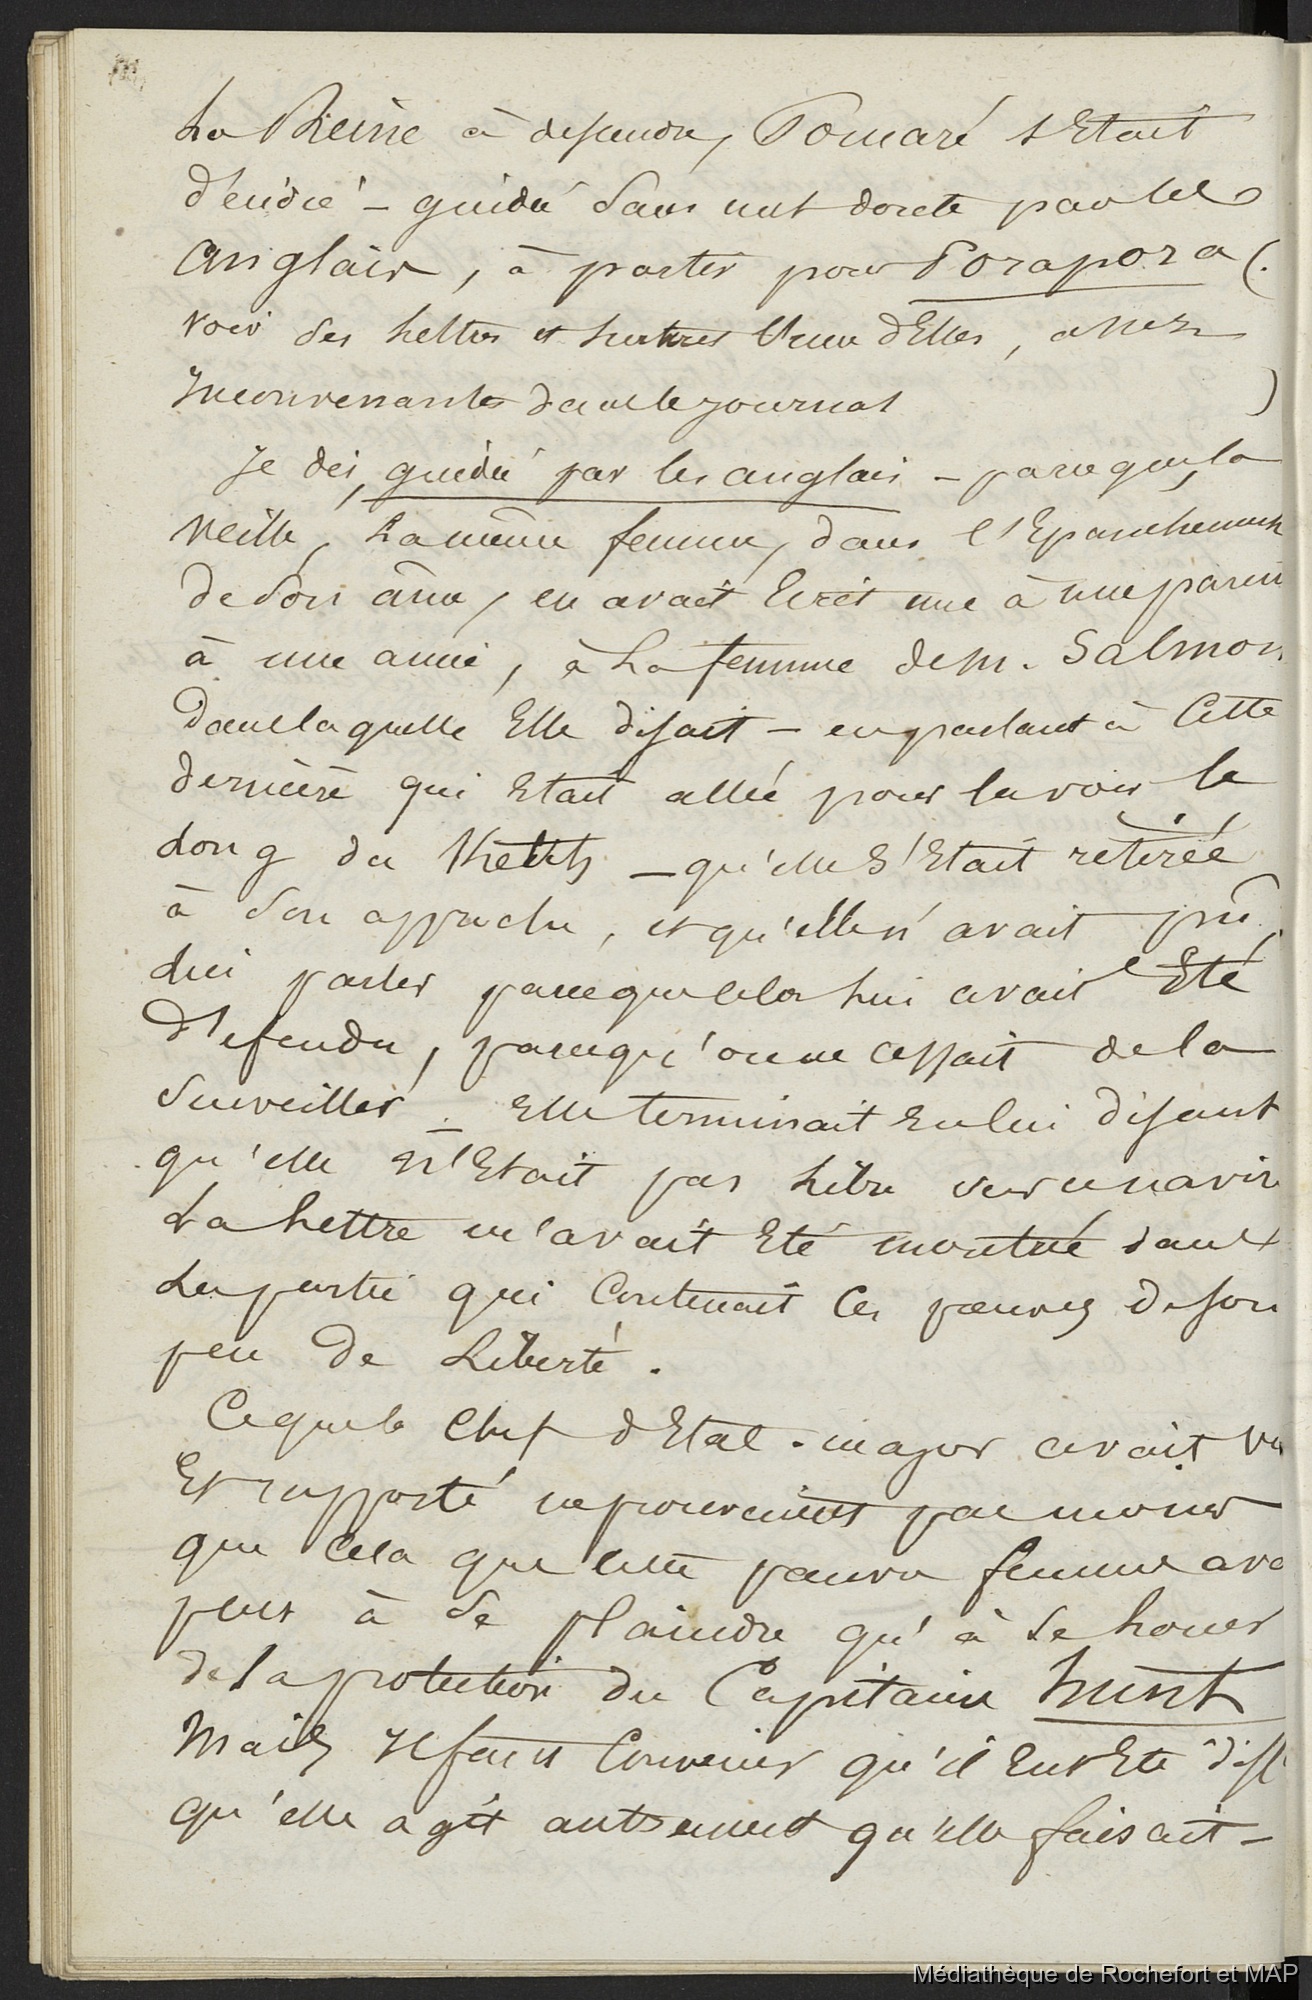 La Reine à descendre, Pomaré s'Etait
décidé - guidée sans nul doute par les
anglais, à partir pour Porapora (.
voir des lettres et surtout l'une d'Elles, assez
Inconvenante dans le journal )
Je dis, guidée par les anglais - parceque, la
veille, La même femme, dans l'Epanchement
de Son âme, en avait Ecrit une à une paren
à une amie, à La femme de M. Salmon
Dans laquelle Elle disait - en parlant à Cette
dernière qui Etait allée pour la voir le
Long du Ketch - qu'elle S'Etait retirée
à Son approche, et qu'elle n'avait pu
Lui parler parceque cela lui avait Eté
défendu, parcequ'on ne cessait de la
Surveiller. Elle terminait En lui disant
qu'elle n'Etait pas Libre sur ce navir
La Lettre m'avait Eté montrée dans
La partie qui Contenait Ces preuves de son
peu de Liberté.
Ce que le Chef d'Etat-major avait vu
Et rapporté ne prouvaient pas moins
que Cela que cette pauvre femme ava
plus à Se plaindre qu'à Se louer
de la protection du Capitaine Hunt
Mais Il faut Convenir qu'il Eut Eté diff
qu'elle agit autrement qu'elle faisait -
Médiathèque de Rochefort et MAP